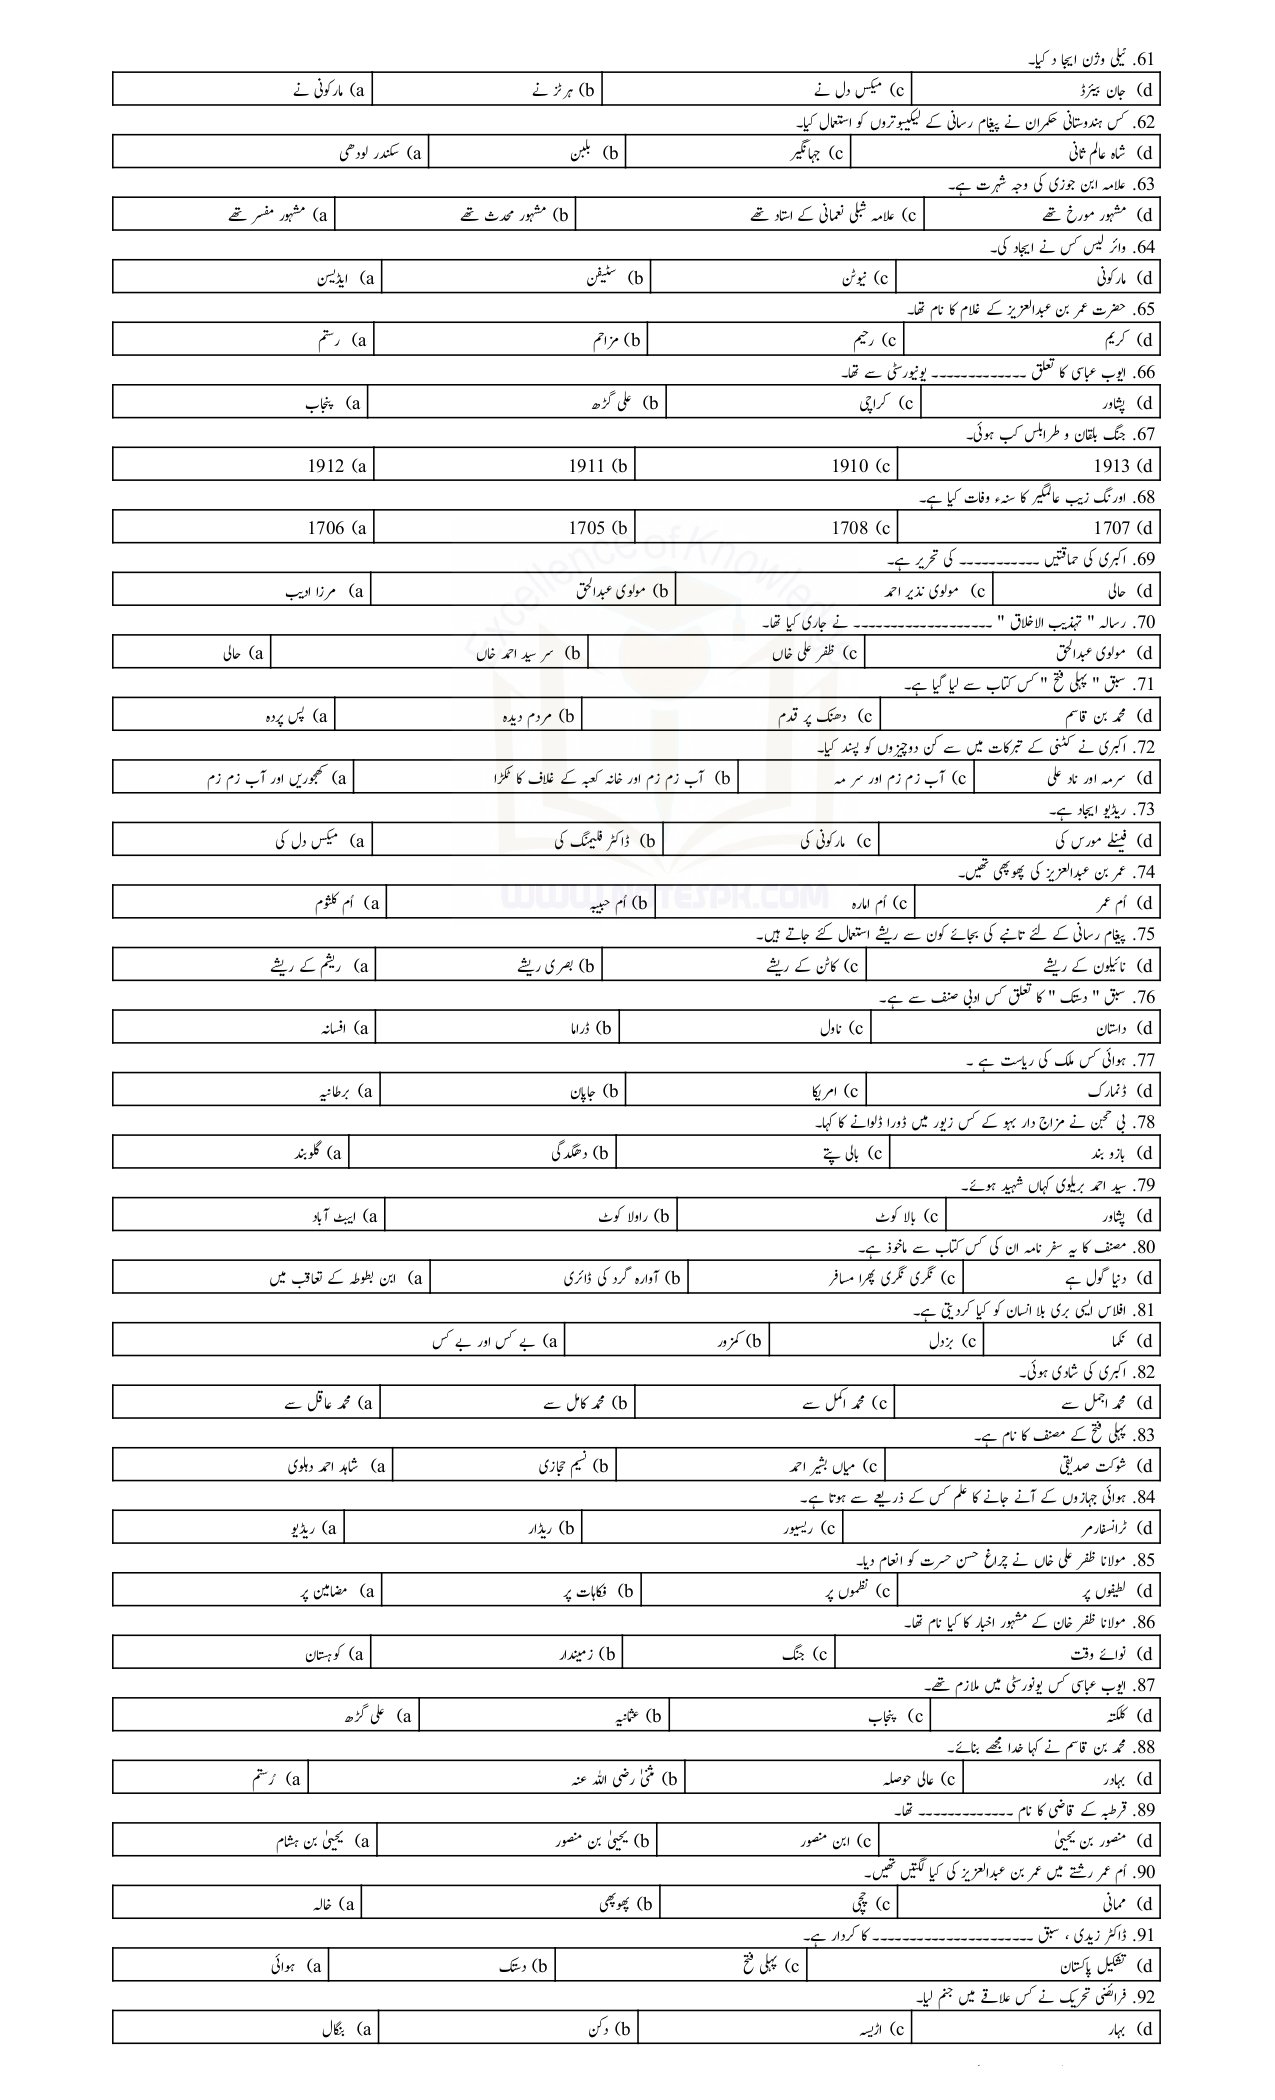 61. ٹیلی وژن ایجا د کیا۔
(d جان بیئرڈ (c میکس دل نے (b ہرٹز نے (a مارکونی نے
62. کس ہندوستانی حکمران نے پیغام رسانی کے لیکیبوتروں کو استعمال کیا۔
(d شاہ عالم ثانی (c جہانگیر (b بلبن (a سکندر لودھی
63. علامہ ابن جوزی کی وجہ شہرت ہے۔
(d مشہور مورخ تھے (c علامہ شبلی نعمانی کے استاد تھے (b مشہور محدث تھے (a مشہور مفسر تھے
64. وائر لیس کس نے ایجاد کی۔
(d مارکونی (c نیوٹن (b سٹیفن (a ایڈیسن
65. حضرت عمر بن عبدالعزیز کے غلام کا نام تھا۔
(d کریم (c رحیم (b مزاحم (a رستم
66. ایوب عباسی کا تعلق ------------- یونیورسٹی سے تھا۔
(d پشاور (c کراچی (b علی گڑھ (a پنجاب
67. جنگ بلقان و طرابلس کب ہوئی۔
1913 (d 1910 (c 1911 (b 1912 (a
68. اورنگ زیب عالمگیر کا سنہء وفات کیا ہے۔
1707 (d 1708 (c 1705 (b 1706 (a
69. اکبری کی حماقتیں ----------- کی تحریر ہے۔
(d حالی (c مولوی نذیر احمد (b مولوی عبدالحق (a مرزا ادیب
70. رسالہ " تہذیب الاخلاق " ------------------- نے جاری کیا تھا۔
(d مولوی عبدالحق (c ظفر علی خاں (b سر سید احمد خاں (a حالی
71. سبق " پہلی فتح " کس کتاب سے لیا گیا ہے۔
(d محمد بن قاسم (c دھنک پر قدم (b مردم دیدہ (a پس پردہ
72. اکبری نے کٹنی کے تبرکات میں سے کن دوچیزوں کو پسند کیا۔
(d سرمہ اور ناد علی (c آب زم زم اور سر مہ (b آب زم زم اور خانہ کعبہ کے غلاف کا ٹکڑا (a کھجوریں اور آب زم زم
73. ریڈیو ایجاد ہے۔
(d فینلے مورس کی (c مارکونی کی (b ڈاکٹر فلیمنگ کی (a میکس دل کی
74. عمر بن عبدالعزیز کی پھوپھی تھیں۔
(d اُم عمر (c اُم امارہ (b اُم حبیبہ (a اُم کلثوم
75. پیغام رسانی کے لئے تانبے کی بجائے کون سے ریشے استعمال کئے جاتے ہیں۔
(d نائیلون کے ریشے (c کاٹن کے ریشے (b بصری ریشے (a ریشم کے ریشے
76. سبق " دستک " کا تعلق کس ادبی صنف سے ہے۔
(d داستان (c ناول (b ڈراما (a افسانہ
77. ہوائی کس ملک کی ریاست ہے ۔
(d ڈنمارک (c امریکا (b جاپان (a برطانیہ
78. بی حجن نے مزاج دار بہو کے کس زیور میں ڈورا ڈلوانے کا کہا۔
(d بازو بند (c بالی پتے (b دھگدگی (a گلوبند
79. سید احمد بریلوی کہاں شہید ہوئے۔
(d پشاور (c بالا کوٹ (b راولا کوٹ (a ایبٹ آباد
80. مصنف کا یہ سفر نامہ ان کی کس کتاب سے ماخوذ ہے۔
(d دنیا گول ہے (c نگری نگری پھرا مسافر (b آوارہ گرد کی ڈائری (a ابن بطوطہ کے تعاقب میں
81. افلاس ایسی بری بلا انسان کو کیا کردیتی ہے۔
(d نکما (c بزدل (b کمزور (a بے کس اور بے کس
82. اکبری کی شادی ہوئی۔
(d محمد اجمل سے (c محمد اکمل سے (b محمد کامل سے (a محمد عاقل سے
83. پہلی فتح کے مصنف کا نام ہے۔
(d شوکت صدیقی (c میاں بشیر احمد (b نسیم حجازی (a شاہد احمد دہلوی
84. ہوائی جہازوں کے آنے جانے کا علم کس کے ذریعے سے ہوتا ہے۔
(d ٹرانسفارمر (c ریسیور (b ریڈار (a ریڈیو
85. مولانا ظفر علی خاں نے چراغ حسن حسرت کو انعام دیا۔
(d لطیفوں پر (c نظموں پر (b فکاہات پر (a مضامین پر
86. مولانا ظفر خان کے مشہور اخبار کا کیا نام تھا۔
(d نوائے وقت (c جنگ (b زمیندار (a کوہستان
87. ایوب عباسی کس یونورسٹی میں ملازم تھے۔
(d کلکتہ (c پنجاب (b عثمانیہ (a علی گڑھ
88. محمد بن قاسم نے کہا خدا مجھے بنائے۔
(d بہادر (c عالی حوصلہ (b مثنیٰ رضی اللہ عنہ (a رُستم
89. قرطبہ کے قاضی کا نام ------------- تھا۔
(d منصور بن یحییٰ (c ابن منصور (b یحییٰ بن منصور (a یحییٰ بن ہشام
90. اُم عمر رشتے میں عمر بن عبدالعزیز کی کیا لگتیں تھیں۔
(d ممانی (c چچی (b پھوپھی (a خالہ
91. ڈاکٹر زیدی ، سبق ---------------------- کا کردار ہے۔
(d تشکیل پاکستان (c پہلی فتح (b دستک (a ہوائی
92. فرائضی تحریک نے کس علاقے میں جنم لیا۔
(d بہار (c اڑیسہ (b دکن (a بنگال
Excellence of Knowledge
WWW.NOTESPK.COM